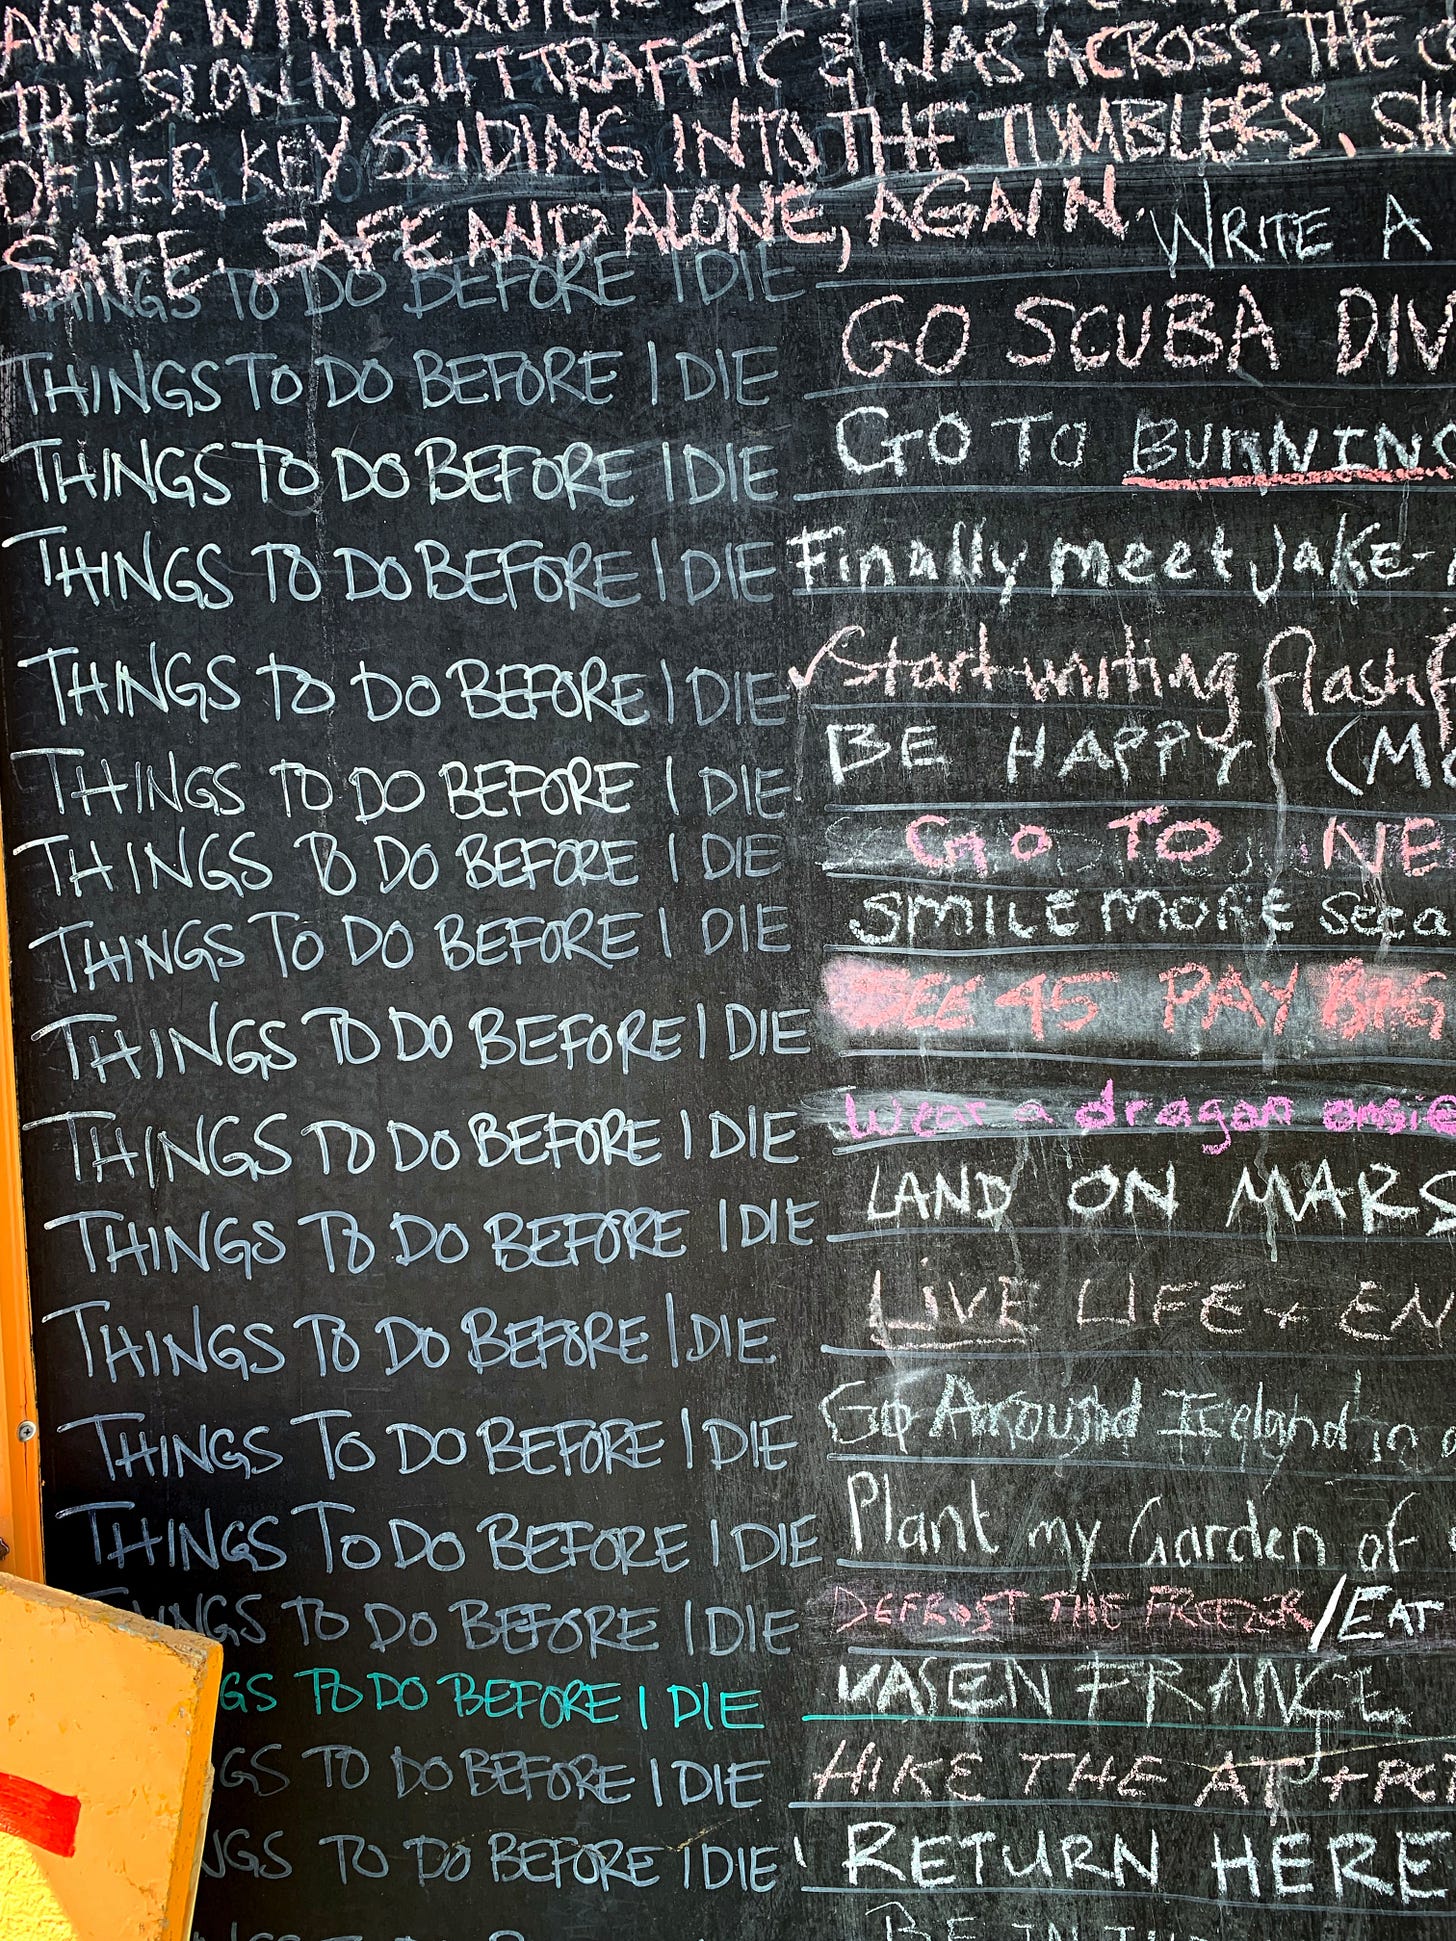 AWAY. WITH
THE SLOW NIGHT TRAFFIC & WAS ACROSS. THE
OF HER KEY SLIDING INTO THE TUMBLERS. SH
SAFE. SAFE AND ALONE, AGAIN.
THINGS TO DO BEFORE I DIE WRITE A
THINGS TO DO BEFORE I DIE GO SCUBA DIV
THINGS TO DO BEFORE I DIE GO TO BURNING
THINGS TO DO BEFORE I DIE Finally meet Jake-
THINGS TO DO BEFORE I DIE ✓Start writing flash f
THINGS TO DO BEFORE I DIE BE HAPPY (M
THINGS TO DO BEFORE I DIE GO TO NE
THINGS TO DO BEFORE I DIE SMILE MORE
THINGS TO DO BEFORE I DIE SEE 45 PAY BIG
THINGS TO DO BEFORE I DIE Wear a dragon onsie
THINGS TO DO BEFORE I DIE LAND ON MARS
THINGS TO DO BEFORE I DIE LIVE LIFE + EN
THINGS TO DO BEFORE I DIE Go Around Iceland in
THINGS TO DO BEFORE I DIE Plant my Garden of
NGS TO DO BEFORE I DIE DEFROST THE FREEZER /EAT
GS TO DO BEFORE I DIE FRANCE
GS TO DO BEFORE I DIE HIKE THE AT +
NGS TO DO BEFORE I DIE RETURN HERE
BE IN